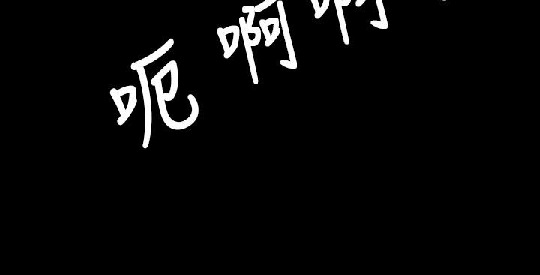 呃啊啊